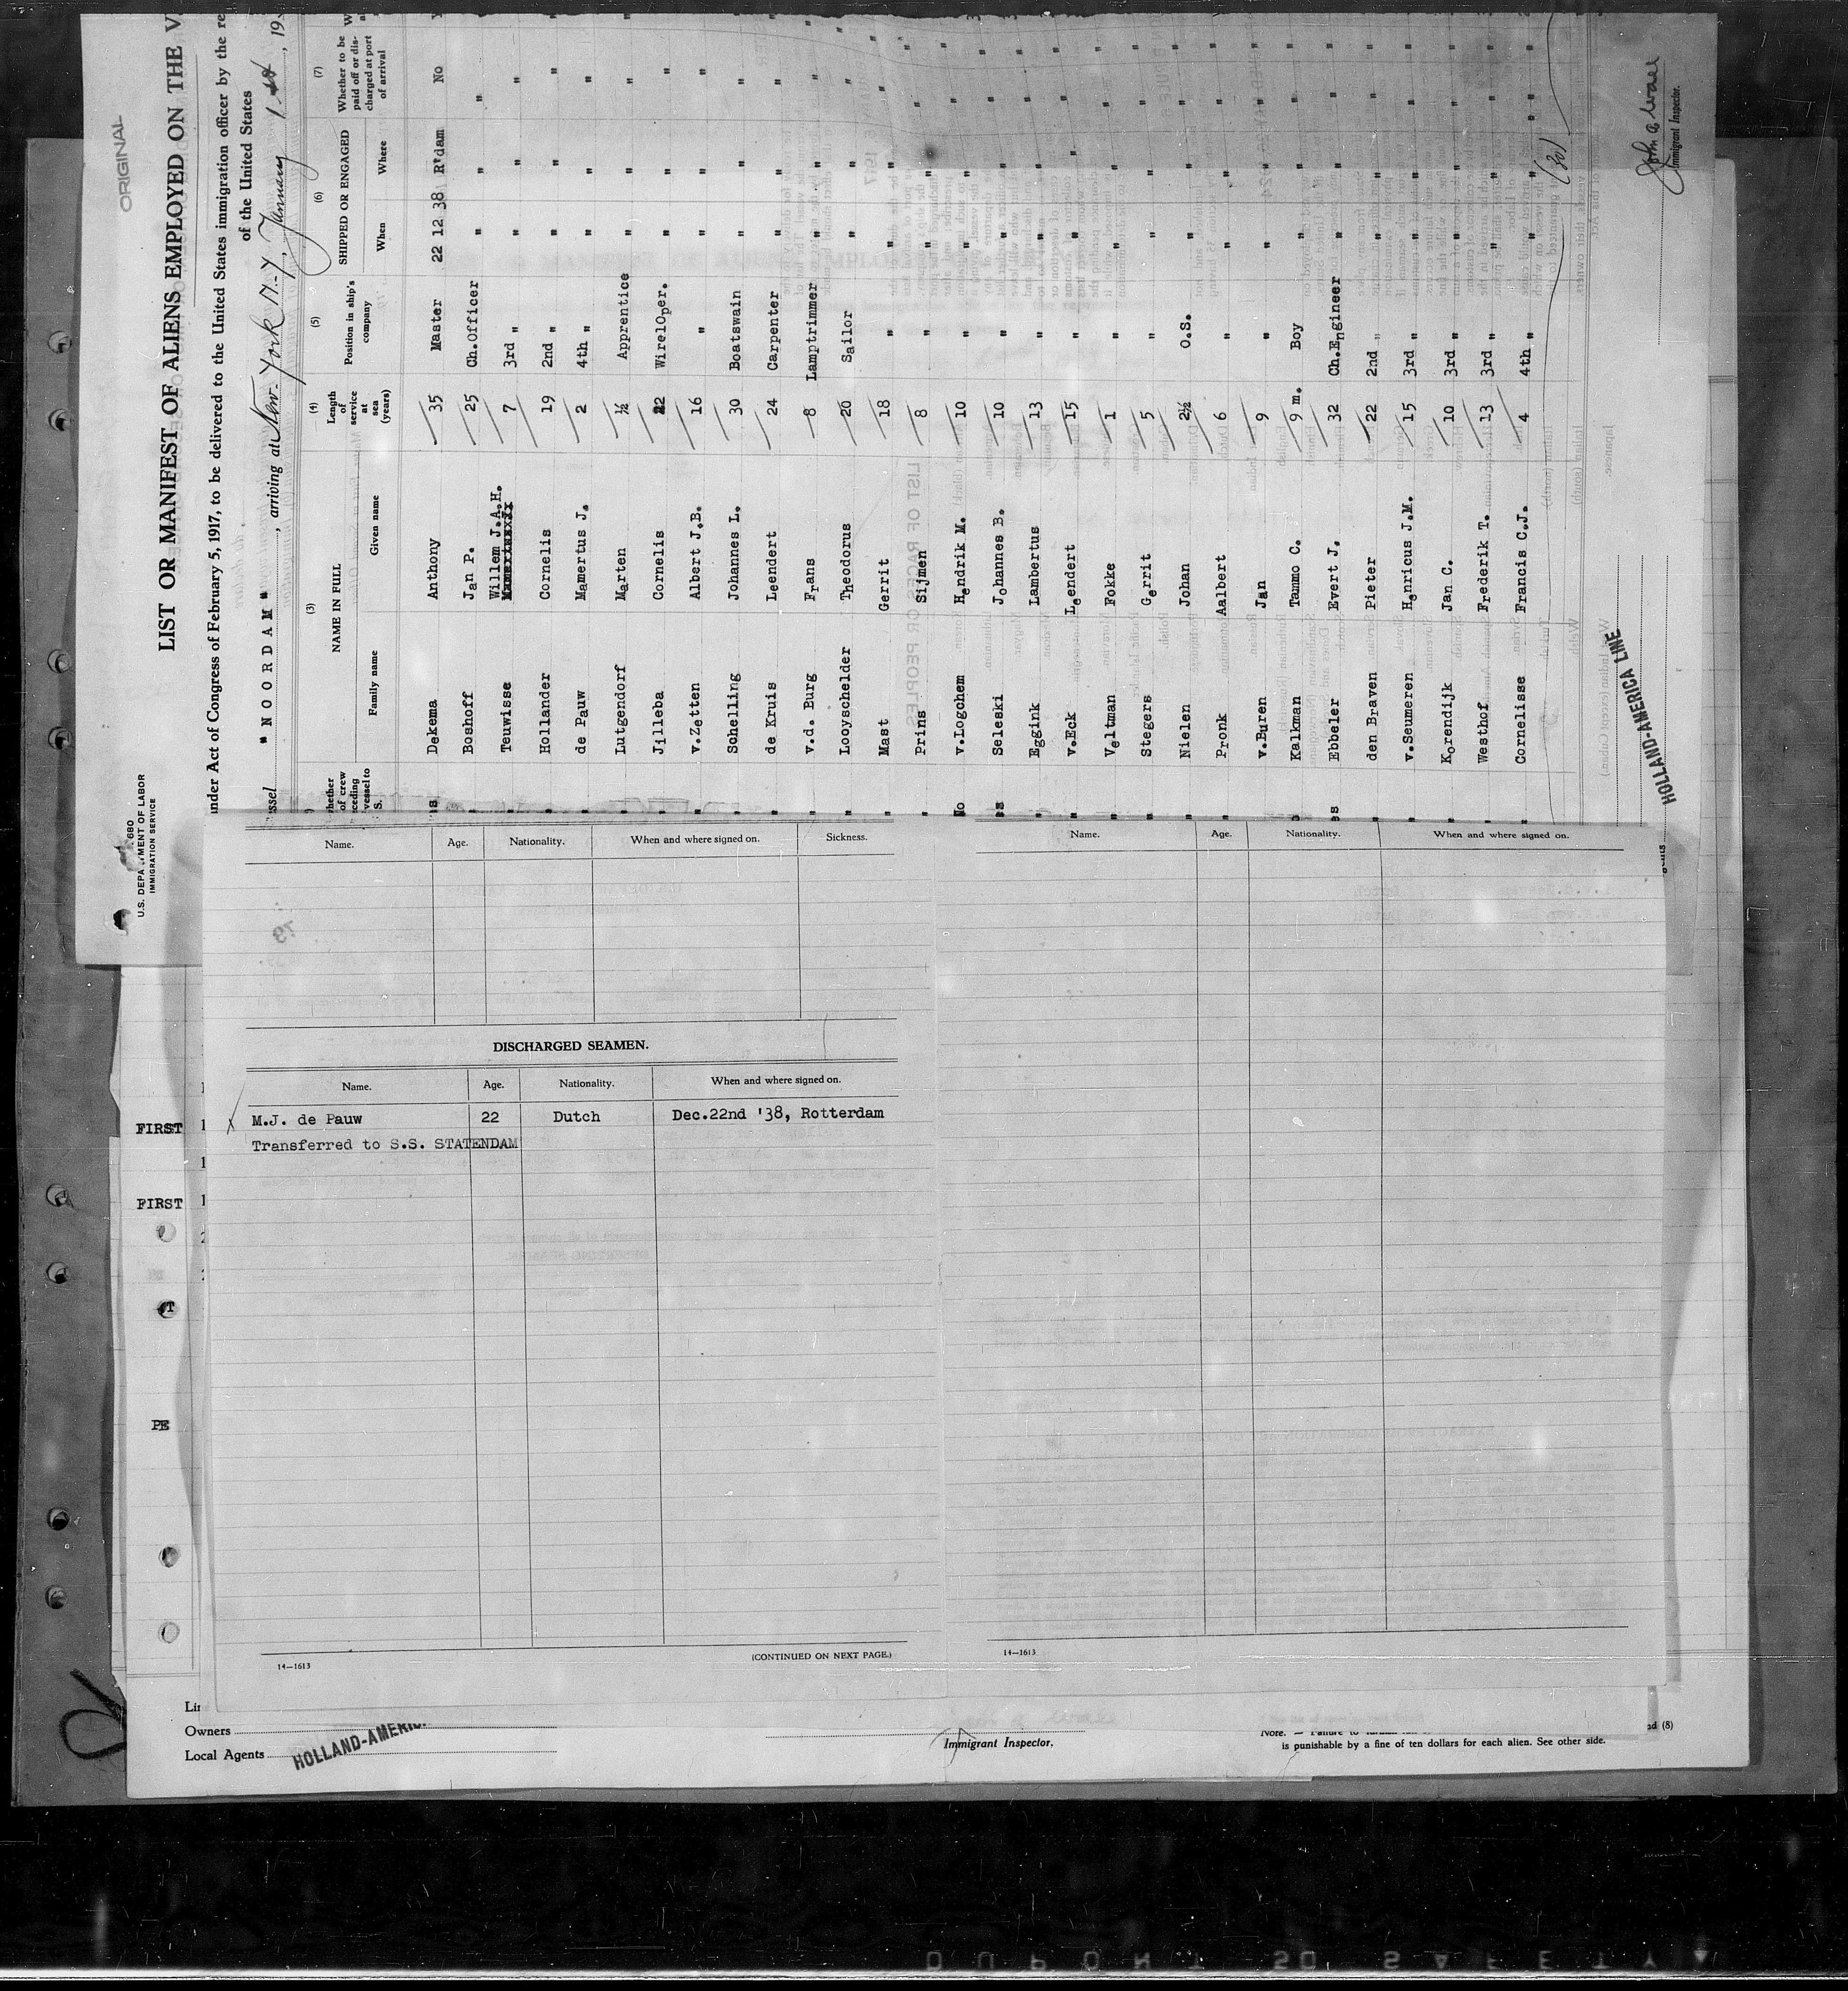 ORIGINAL
U.S. DEPARTMENT OF LABOR
IMMIGRATION SERVICE
LIST OR MANIFEST OF ALIENS EMPLOYED ON THE V
under Act of Congress of February 5, 1917, to be delivered to the United States immigration officer by the re
of the United States
ssel " N O O R D A M ", arriving at New-York N.-Y., January 1st, 19
(3) (4) (5) (6) (7)
NAME IN FULL Length of service at sea (years) Position in ship's company SHIPPED OR ENGAGED Whether to be paid off or discharged at port of arrival
Family name Given name When Where
Dekema Anthony 35 Master 22 12 38 R'dam No
Boshoff Jan P. 25 Ch.Officer " " "
Teuwisse Willem J.A.H. 7 3rd " " " "
Hollander Cornelis 19 2nd " " " "
de Pauw Mamertus J. 2 4th " " " "
Lutgendorf Marten ½ Apprentice " " "
Jilleba Cornelis 22 WirelOper. " " "
v.Zetten Albert J.B. 16 " " " "
Schelling Johannes L. 30 Boatswain " " "
de Kruis Leendert 24 Carpenter " " "
v.d. Burg Frans 8 Lamptrimmer " " "
Looyschelder Theodorus 20 Sailor " " "
Mast Gerrit 18 " " " "
Prins Sijmen 8 " " " "
v.Logchem Hendrik M. 10 " " " "
Seleski Johannes B. 10 " " " "
Eggink Lambertus 13 " " " "
v.Eck Leendert 15 " " " "
Veltman Fokke 1 " " " "
Stegers Gerrit 5 " " " "
Nielen Johan 2½ O.S. " " "
Pronk Aalbert 6 " " " "
v.Buren Jan 9 " " " "
Kalkman Tammo C. 9 m. Boy " " "
Ebbeler Evert J. 32 Ch.Engineer " " "
den Braven Pieter 22 2nd " " " "
v.Seumeren Henricus J.M. 15 3rd " " " "
Korendijk Jan C. 10 3rd " " " "
Westhof Frederik T. 13 3rd " " " "
Cornelisse Francis C.J. 4 4th " " " "
(30)
HOLLAND-AMERICA LINE
Immigrant Inspector.
Name. Age. Nationality. When and where signed on. Sickness.
DISCHARGED SEAMEN.
Name. Age. Nationality. When and where signed on.
M.J. de Pauw 22 Dutch Dec.22nd '38, Rotterdam
Transferred to S.S. STATENDAM
14—1613
(CONTINUED ON NEXT PAGE.)
Name. Age. Nationality. When and where signed on.
14—1613
FIRST
FIRST
Owners
Local Agents
HOLLAND-AMERIC
Immigrant Inspector.
is punishable by a fine of ten dollars for each alien. See other side.
DUPONT SD SAFETY